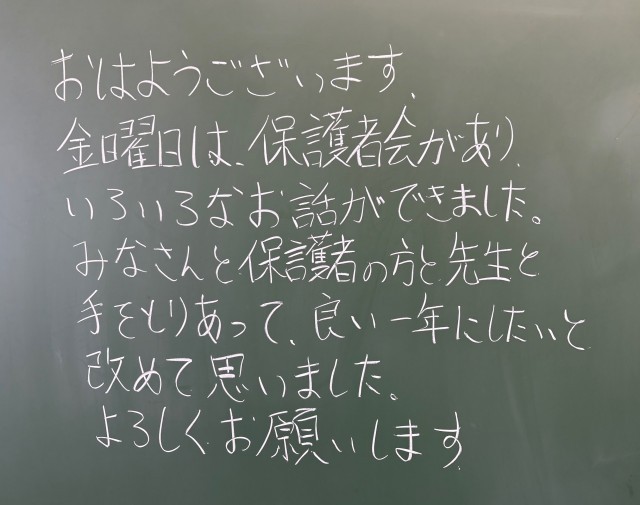 おはようございます、
金曜日は、保護者会があり、
いろいろなお話ができました。
みなさんと保護者の方と先生と
手をとりあって、良い一年にしたいと
改めて思いました。
よろしくお願いします